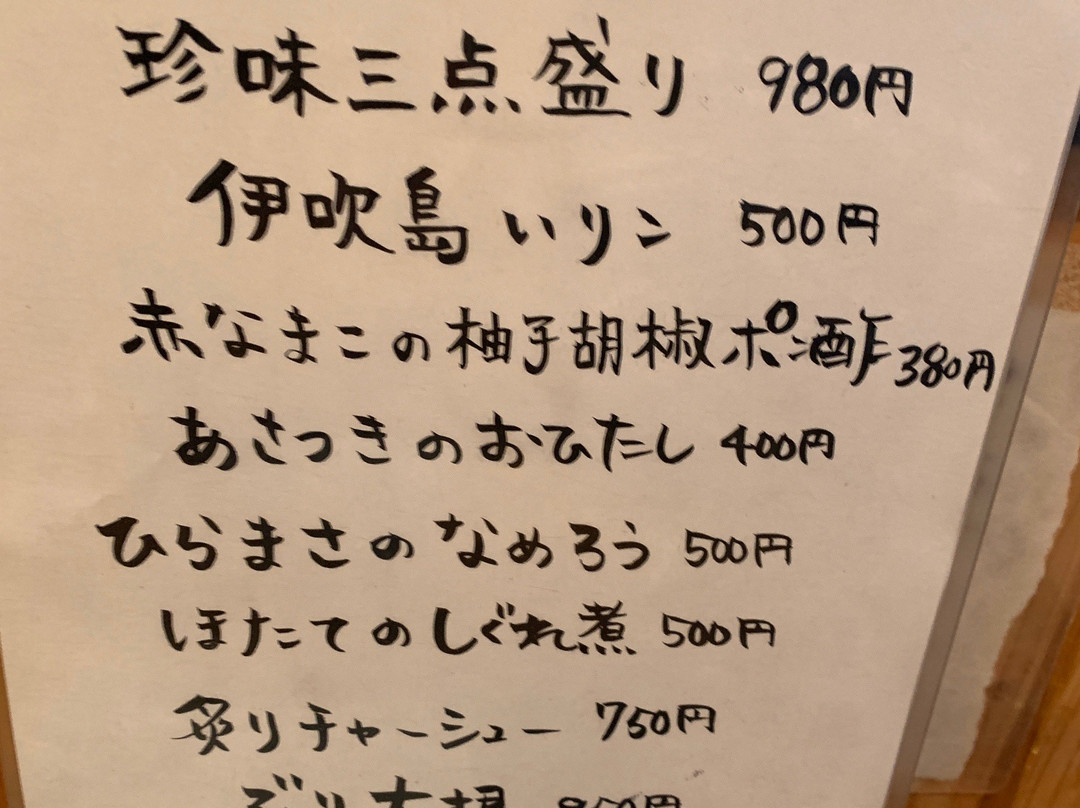 珍味三点盛り 980円
伊吹島いリコ 500円
赤なまこの柚子胡椒ポン酢 380円
あさつきのおひたし 400円
ひらまさのなめろう 500円
ほたてのしぐれ煮 500円
炙りチャーシュー 750円